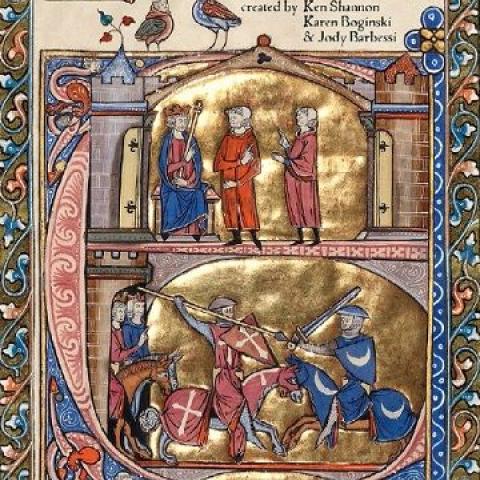 created by Ken Shannon
Karen Boginski
& Jody Barbessi